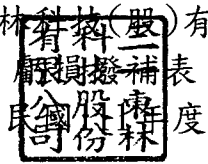 林科技(股)有
虧損撥補表
民國年度
東林
科技股份
有限公司